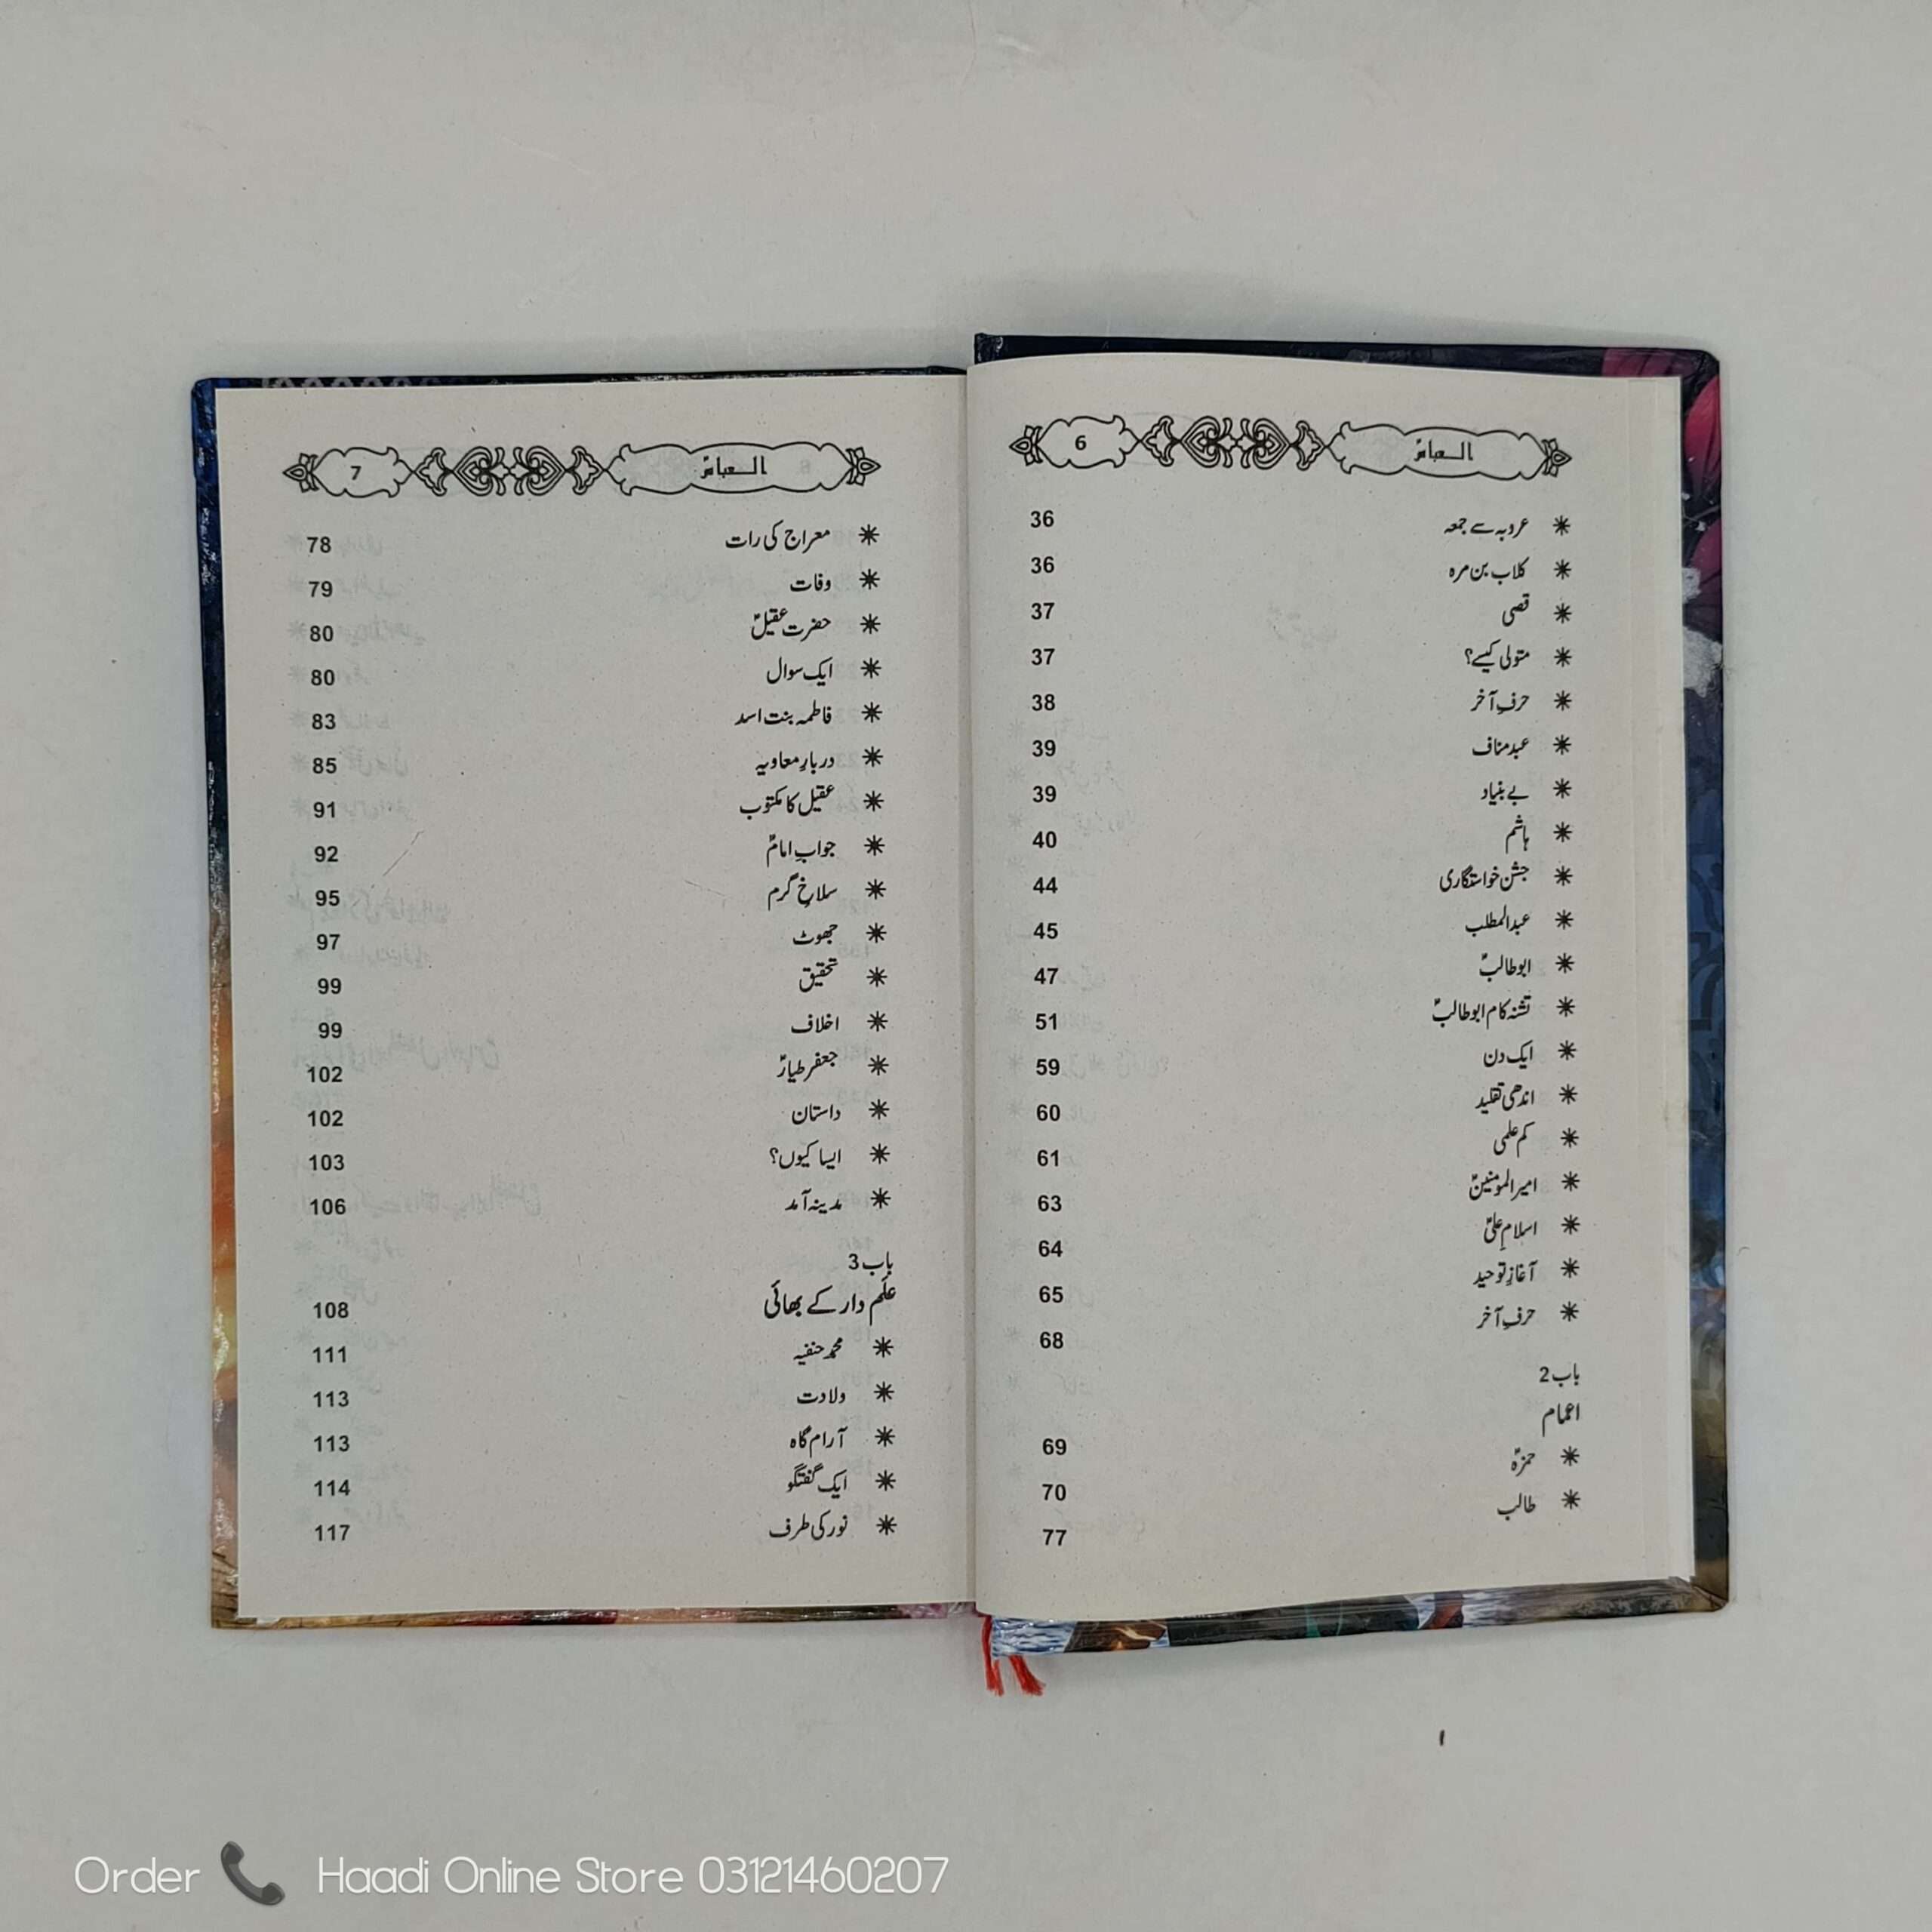 العباسؑ 6
عروبہ سے جمعہ 36
کلاب بن مرہ 36
قصی 37
متولی کیسے؟ 37
حرفِ آخر 38
عبد مناف 39
بے بنیاد 39
ہاشم 40
جشن خواستگاری 44
عبدالمطلب 45
ابوطالبؑ 47
تشنہ کام ابوطالبؑ 51
ایک دن 59
اندھی تقلید 60
کم علمی 61
امیرالمومنینؑ 63
اسلامِ علیؑ 64
آغازِ توحید 65
حرفِ آخر 68
باب 2
اعمام 69
حمزہؑ 70
طالب 77
العباسؑ 7
معراج کی رات 78
وفات 79
حضرت عقیلؑ 80
ایک سوال 80
فاطمہ بنت اسد 83
دربارِ معاویہ 85
عقیل کا مکتوب 91
جوابِ امامؑ 92
سلاخِ گرم 95
جھوٹ 97
تحقیق 99
اخلاف 99
جعفر طیارؑ 102
داستان 102
ایسا کیوں؟ 103
مدینہ آمد 106
باب 3
علَم دار کے بھائی 108
محمد حنفیہ 111
ولادت 113
آرام گاہ 113
ایک گفتگو 114
نور کی طرف 117
Order Haadi Online Store 03121460207